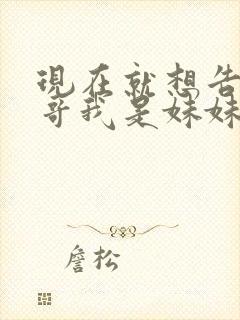 現在就想告
哥我是妹妹
詹松